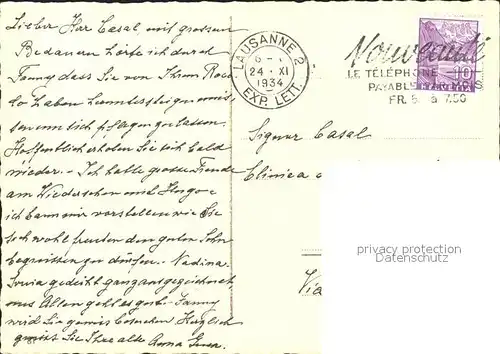 Lieber Herr Casal, mit grossem
Bedauern hörte ich durch
Fanny dass Sie von Ihrem
haben
um sich pflegen zu lassen.
Hoffentlich erholen Sie sich bald
wieder. - Ich hatte grosse Freude
am Wiedersehen mit
ich kann mir vorstellen wie Sie
sich wohl freuten den guten Sohn
begrüssen zu dürfen. - Nadina
gedeiht ganz ausgezeichnet
uns Allen geht es gut. - Fanny
wird Sie gewiss besuchen. Herzlich
grüsst Sie Ihre alte
LAUSANNE 2
24 · XI
1934
EXP. LETT.
Nouveauté
LE TÉLÉPHONE
PAYABLE PAR MOIS
FR. 5. à 7.50
10
HELVETIA
Signor Casal
Clinica
Via
privacy protection
www.ansichtskarten-lexikon.de